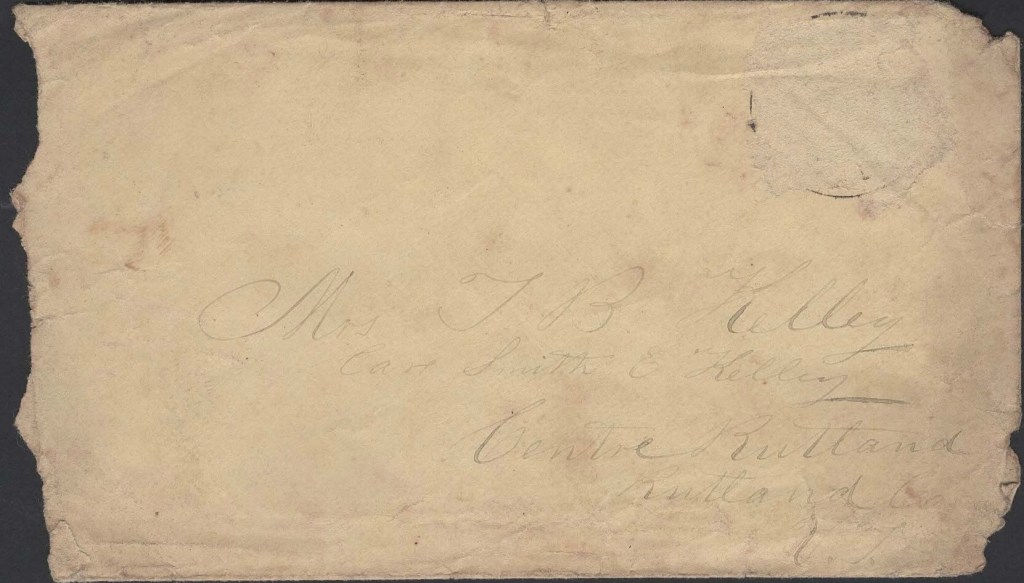 Mrs T. B. Kelley
Care Smith E Kelley
Centre Rutland
Rutland Co